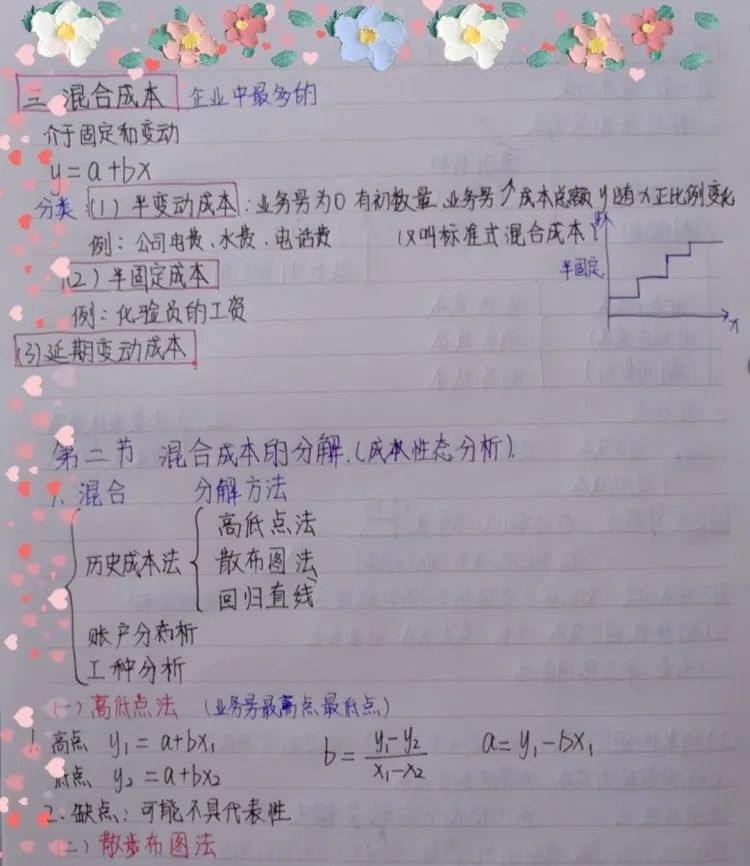 三 混合成本 企业中最多的
介于固定和变动
y=a+bx
分类:(1)半变动成本:业务量为0 有初数量 业务量↑成本总额y随x正比例变化
例:公司电费、水费、电话费 (又叫标准式混合成本)
(2)半固定成本
半固定
x
例:化验员的工资
(3)延期变动成本
第二节 混合成本的分解.(成本性态分析).
1. 混合 分解方法
历史成本法
高低点法
散布图法
回归直线
账户分析
工种分析
(一)高低点法 (业务量最高点最低点)
1. 高点 y₁=a+bx₁ b=(y₁-y₂)/(x₁-x₂) a=y₁-bx₁
低点 y₂=a+bx₂
2. 缺点:可能不具代表性
(二)散布图法